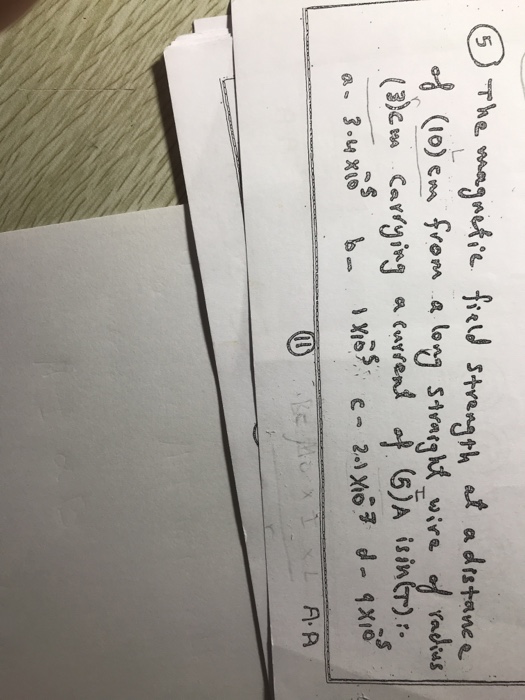 5 The magnetic field strength at a distance
L
of (10)cm from a long straight wire of radius
r I
(3)cm carrying a current of (5)A is in (T):.
a- 3.4x10^-5 b- 1x10^-5 c- 2.1x10^-7 d- 9x10^-5
11
A.A